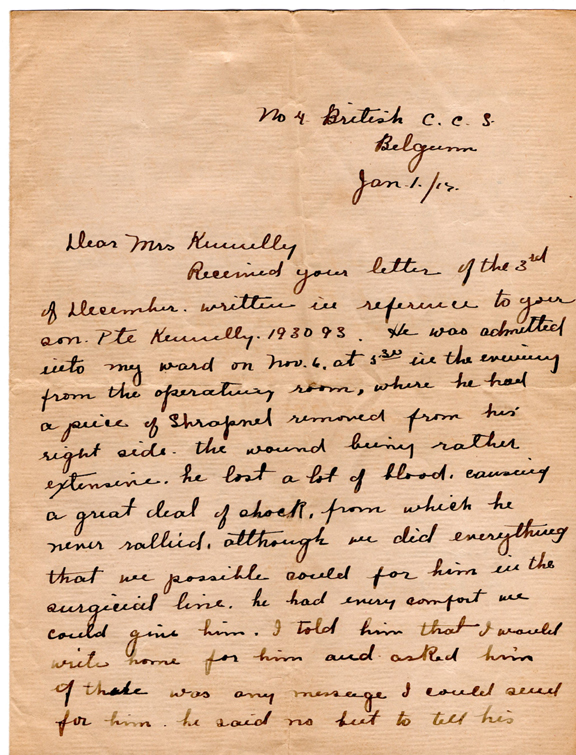 No 4 British C. C. S.
Belgium
Jan. 1. /17.
Dear Mrs Kennelly
Received your letter of the 3rd
of December. written in reference to your
son. Pte Kennelly. 193093. He was admitted
into my ward on Nov. 6. at 5 30 in the evening
from the operating room, where he had
a piece of Shrapnel removed from his
right side. the wound being rather
extensive. he lost a lot of blood. causing
a great deal of shock, from which he
never rallied, although we did everything
that we possible could for him in the
surgicial line. he had every comfort we
could give him. I told him that I would
write home for him and asked him
if there was any message I could send
for him. he said no but to tell his